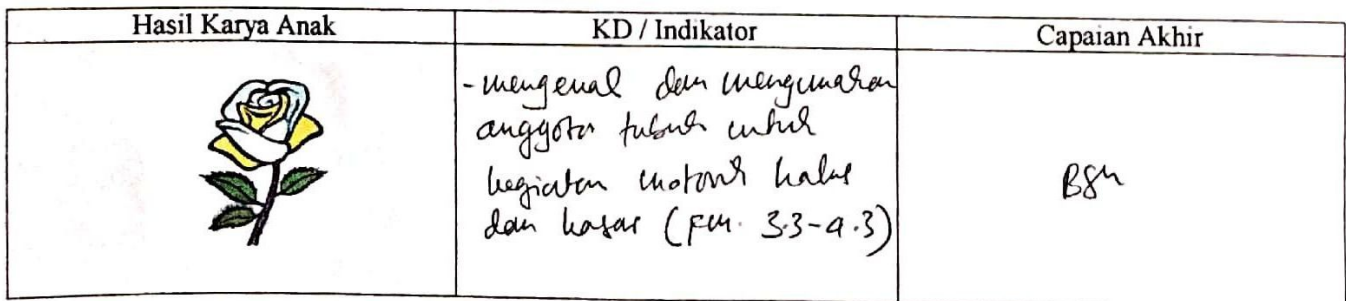 Hasil Karya Anak
KD / Indikator
Capaian Akhir
- mengenal dan mengunakan
anggota tubuh untuk
kegiatan motorik halus
dan kasar (FM. 3.3-4.3)
BSH